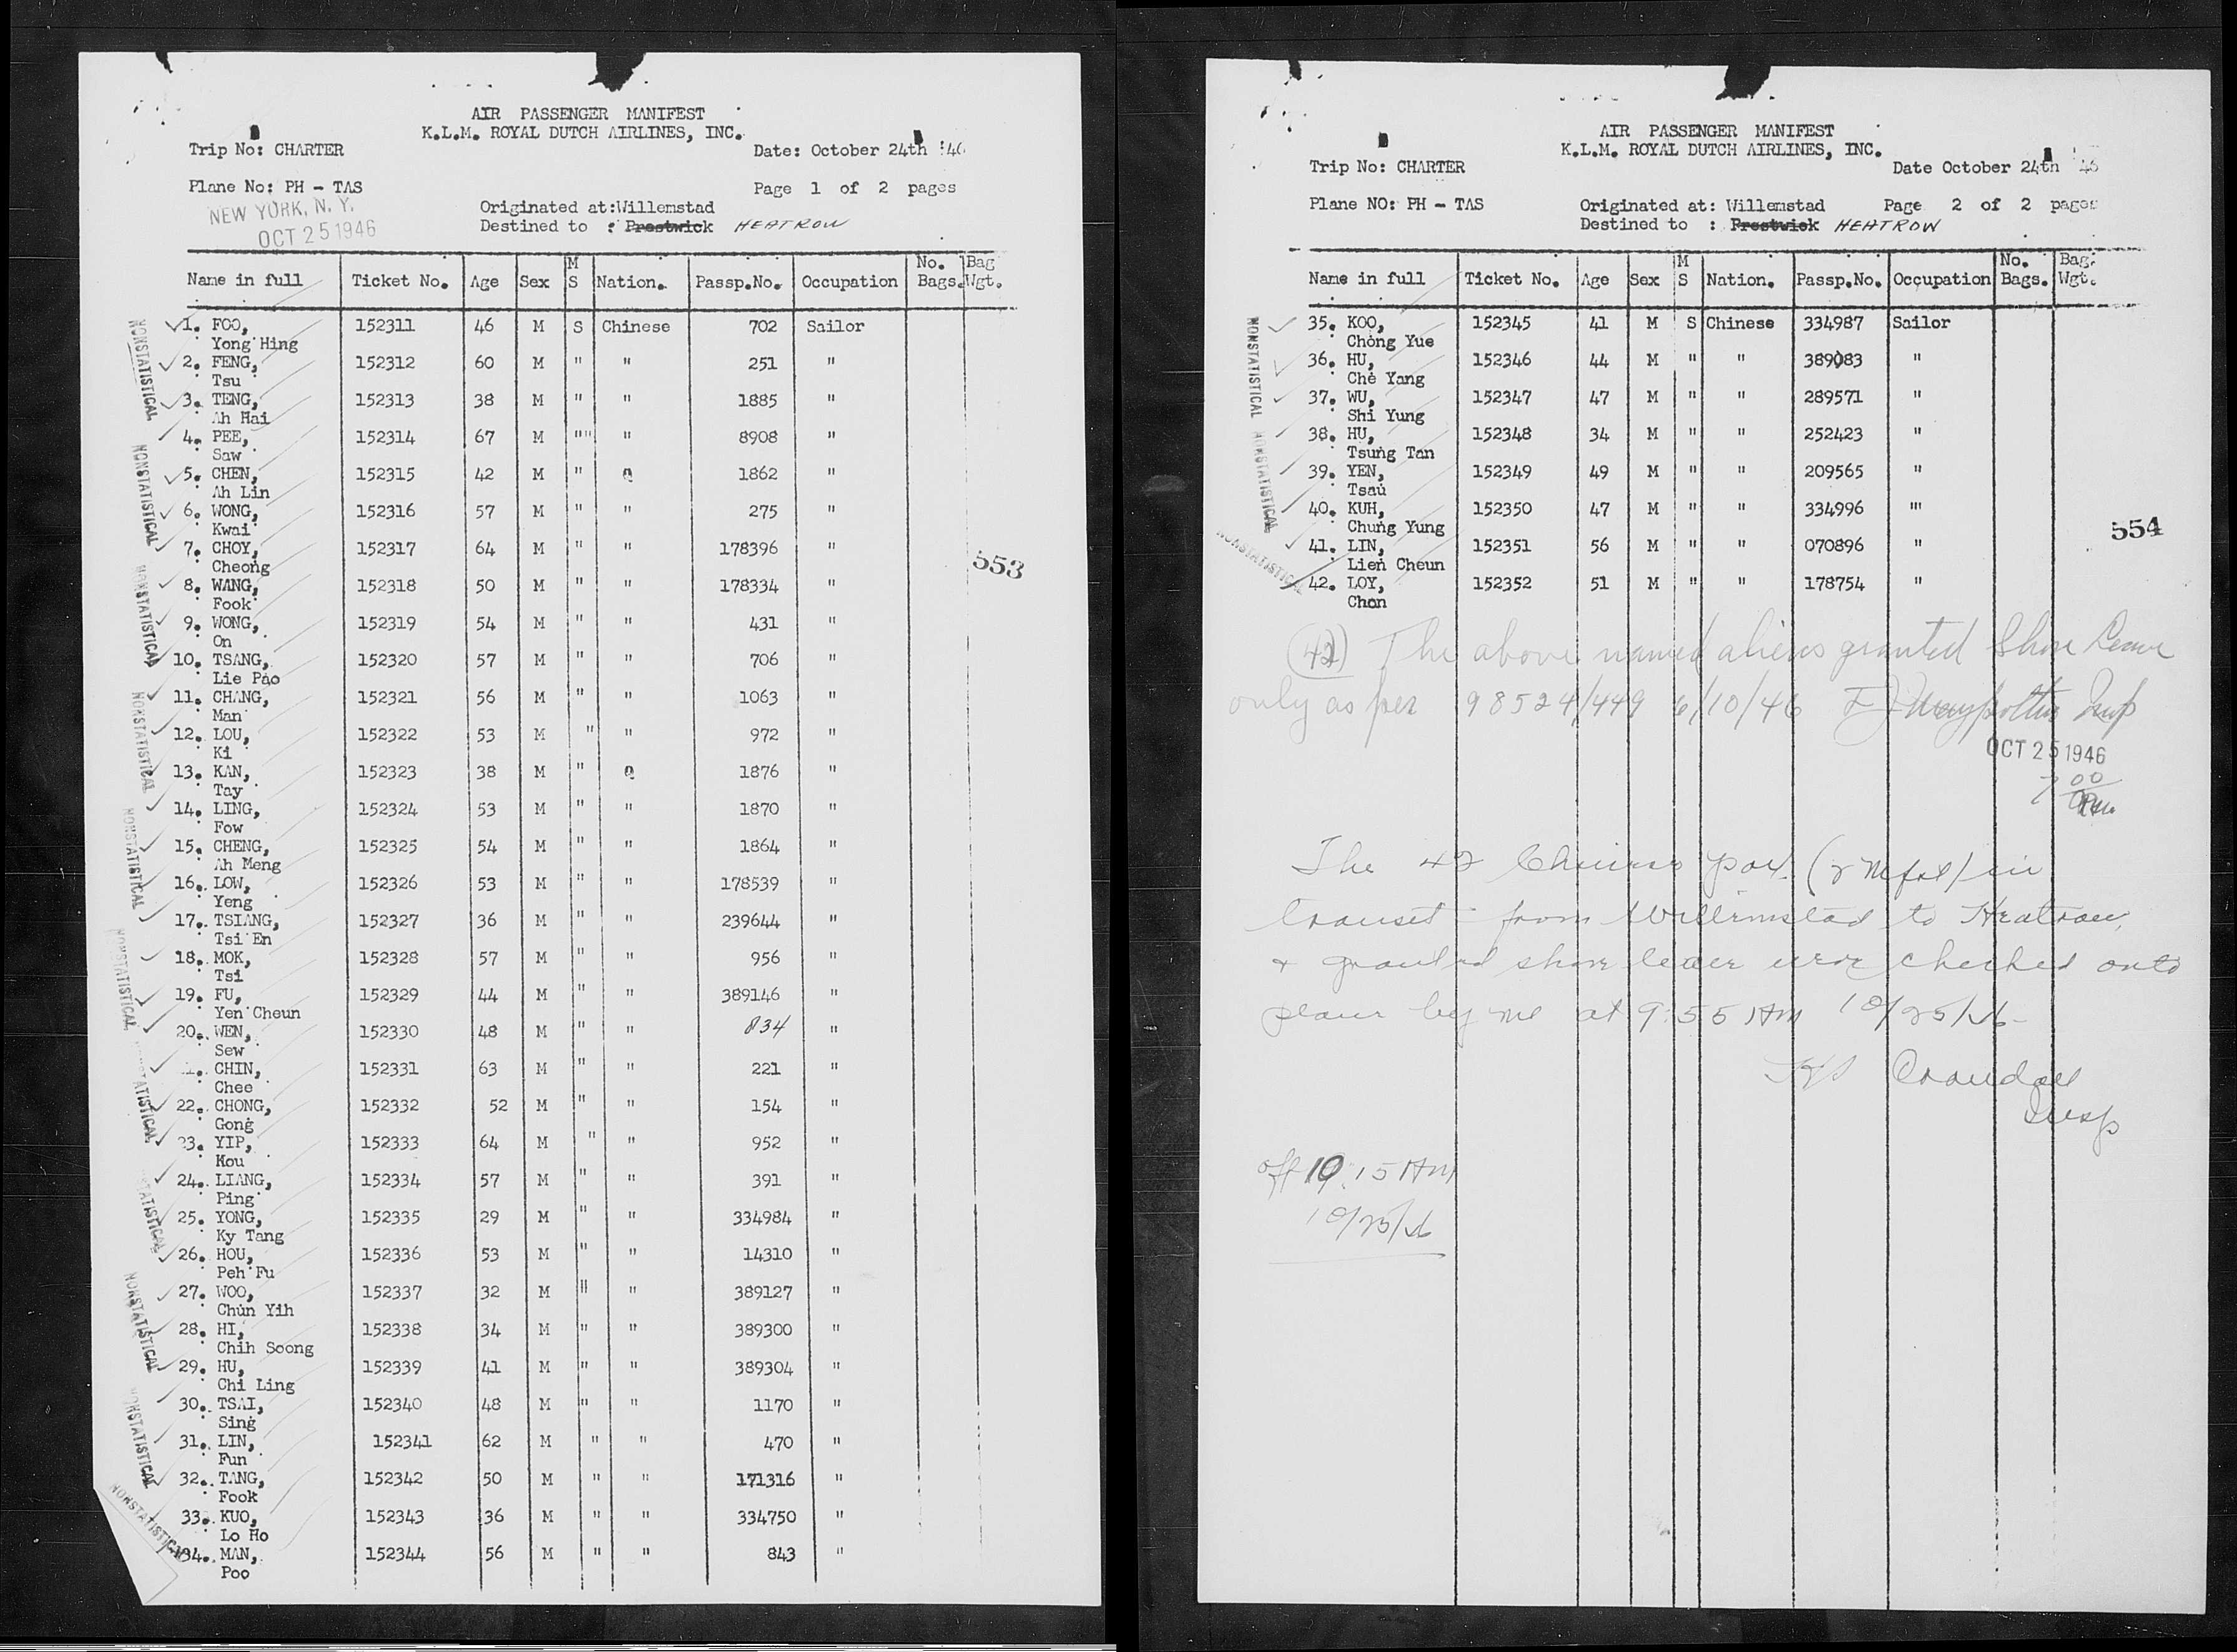 AIR PASSENGER MANIFEST
K.L.M. ROYAL DUTCH AIRLINES, INC.
Trip No: CHARTER Date: October 24th '46
Plane No: PH - TAS Page 1 of 2 pages
NEW YORK, N. Y.
OCT 25 1946
Originated at: Willemstad
Destined to : Prestwick HEATROW
Name in full Ticket No. Age Sex M S Nation. Passp.No. Occupation No. Bags. Bag Wgt.
1. FOO, 152311 46 M S Chinese 702 Sailor
Yong Hing
2. FENG, 152312 60 M " " 251 "
Tsu
3. TENG, 152313 38 M " " 1885 "
Ah Hai
4. PEE, 152314 67 M "" " 8908 "
Saw
5. CHEN, 152315 42 M " 1862 "
Ah Lin
6. WONG, 152316 57 M " " 275 "
Kwai
7. CHOY, 152317 64 M " " 178396 "
Cheong
8. WANG, 152318 50 M " " 178334 "
Fook
9. WONG, 152319 54 M " " 431 "
On
10. TSANG, 152320 57 M " " 706 "
Lie Pao
11. CHANG, 152321 56 M " " 1063 "
Man
12. LOU, 152322 53 M " " 972 "
Ki
13. KAN, 152323 38 M " 1876 "
Tay
14. LING, 152324 53 M " " 1870 "
Fow
15. CHENG, 152325 54 M " " 1864 "
Ah Meng
16. LOW, 152326 53 M " " 178539 "
Yeng
17. TSIANG, 152327 36 M " " 239644 "
Tsi En
18. MOK, 152328 57 M " " 956 "
Tsi
19. FU, 152329 44 M " " 389146 "
Yen Cheun
20. WEN, 152330 48 M " " 834 "
Sew
1. CHIN, 152331 63 M " " 221 "
Chee
22. CHONG, 152332 52 M " " 154 "
Gong
23. YIP, 152333 64 M " " 952 "
Kou
24. LIANG, 152334 57 M " " 391 "
Ping
25. YONG, 152335 29 M " " 334984 "
Ky Tang
26. HOU, 152336 53 M " " 14310 "
Peh Fu
27. WOO, 152337 32 M " " 389127 "
Chun Yih
28. HI, 152338 34 M " " 389300 "
Chih Soong
29. HU, 152339 41 M " " 389304 "
Chi Ling
30. TSAI, 152340 48 M " " 1170 "
Sing
31. LIN, 152341 62 M " " 470 "
Fun
32. TANG, 152342 50 M " " 171316 "
Fook
33. KUO, 152343 36 M " " 334750 "
Lo Ho
34. MAN, 152344 56 M " " 843 "
Poo
553
NONSTATISTICAL
NONSTATISTICAL
NONSTATISTICAL
NONSTATISTICAL
NONSTATISTICAL
NONSTATISTICAL
NONSTATISTICAL
NONSTATISTICAL
NONSTATISTICAL
NONSTATISTICAL
NONSTATISTICAL
AIR PASSENGER MANIFEST
K.L.M. ROYAL DUTCH AIRLINES, INC.
Trip No: CHARTER Date October 24th '46
Plane NO: PH - TAS Originated at: Willemstad Page 2 of 2 pages
Destined to : Prestwick HEATROW
Name in full Ticket No. Age Sex M S Nation. Passp.No. Occupation No. Bags. Bag. Wgt.
35. KOO, 152345 41 M S Chinese 334987 Sailor
Chong Yue
36. HU, 152346 44 M " " 389083 "
Che Yang
37. WU, 152347 47 M " " 289571 "
Shi Yung
38. HU, 152348 34 M " " 252423 "
Tsung Tan
39. YEN, 152349 49 M " " 209565 "
Tsau
40. KUH, 152350 47 M " " 334996 "'
Chung Yung
41. LIN, 152351 56 M " " 070896 "
Lien Cheun
42. LOY, 152352 51 M " " 178754 "
Chon
554
NONSTATISTICAL
NONSTATISTICAL
NONSTATISTICAL
(42) The above named aliens granted Shore Leave
only as per 98524/449 6/10/46 Insp
OCT 25 1946
7 00
The 42 Chinese pax. in
transit from Willemstad to Heatrow,
+ granted shore leave were checked onto
plane by me at 9:55 AM 10/25/46
Crandall
Insp
off 10:15 AM
10/25/46